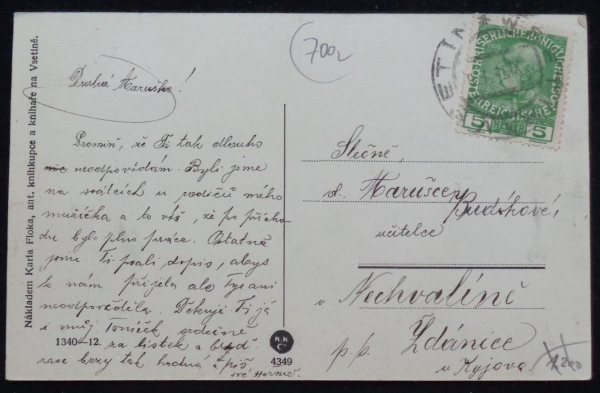 Nákladem Karla Floka, ant. knihkupce a knihaře na Vsetíně.
700,
Drahá Maruško!
Promiň, že Ti tak dlouho
neodpovídám. Byli jsme
na svátcích u rodičů mého
mužíčka a to víš, že po přícho-
du bylo plno práce. Ostatně
jsme Ti psali dopis, abys
k nám přijela ale Tys ani
neodpověděla. Děkuji Ti já
i můj Toníček srdečně
za lístek a buď
zase brzy tak hodná a piš
1340-12.
4349
5 5
Slečně
sl. Marušce
učitelce
v Nechvalíně
p. p. Ždánice
u Kyjova